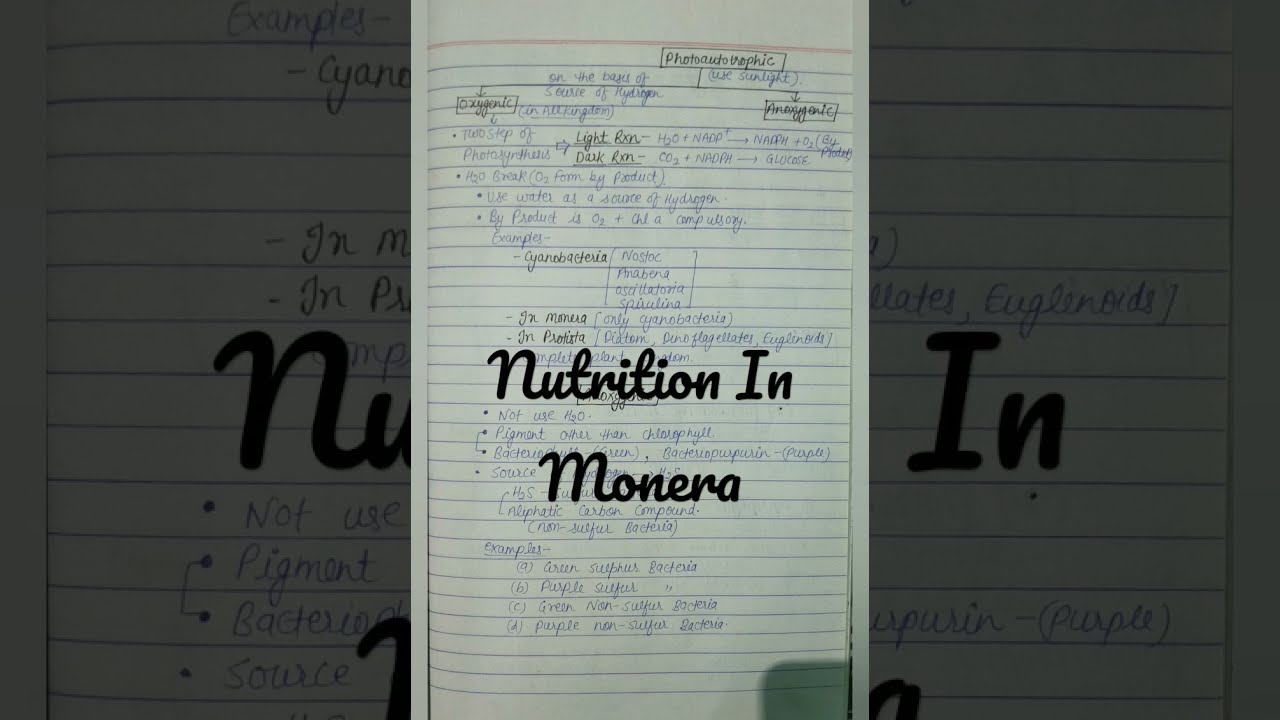 Photoautotrophic
on the bases of (use sunlight).
Source of Hydrogen
Oxygenic (in All Kingdom) Anoxygenic
• Two Step of Photosynthesis ⇨ Light Rxn- H2O + NADP+ → NADPH + O2 (By Product)
Dark Rxn- CO2 + NADPH → GLUCOSE
• H2O Break (O2 Form by Product)
• Use water as a source of Hydrogen.
• By Product is O2 + Chl a compulsory.
Examples-
- Cyanobacteria [Nostoc
Anabena
oscillatoria
Spirulina]
- In Monera [only cyanobacteria)
- In Protista [Diatom, Dinoflagellates, Euglinoids]
plant
Nutrition In
• Not use H2O.
• Pigment other than chlorophyll.
• (Green), Bacteriopurpurin-(Purple)
• Source
Monera
H2S -
Aliphatic Carbon Compound.
(non-sulfur Bacteria)
Examples-
(a) Green sulphur Bacteria
(b) Purple sulfur "
(c) Green Non-sulfur Bacteria
(d) Purple non-sulfur Bacteria.
Examples-
- Cyanob
- In m
- In Pr
llates, Euglinoids]
Nu
In
• Not use
• Pigment
• Bacterioph
urpurin-(Purple)
• Source